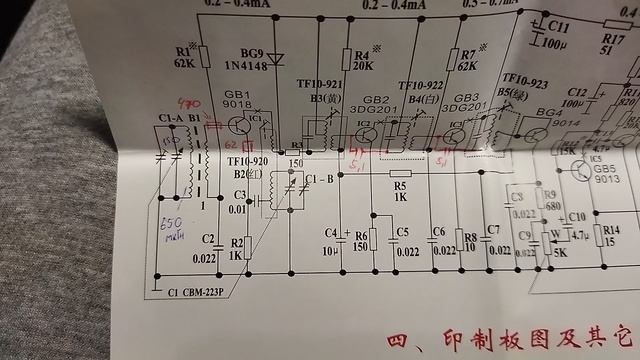 0.2-0.4mA
0.2-0.4mA
0.5-0.7mA
0.4
C11
100μ
R17
51
R1※
62K
BG9
1N4148
R4※
20K
R7※
62K
TF10-921
B3(黄)
TF10-922
B4(白)
TF10-923
B5(绿)
C12
100μ
GB1
9018
GB2
3DG201
GB3
3DG201
BG4
9014
470
C1-A
B1
IC1
IC2
IC3
R3
150
62
5,1
5,1
820
4.7μ
15K
IC5
GB5
9013
TF10-920
B2(红)
C1-B
R5
1K
C3
0.01
C8
0.022
R9
680
C10
4.7μ
650
мкГн
I
C2
0.022
R2
1K
C4
10μ
R6
150
C5
0.022
C6
0.022
R8
10
C7
0.022
C9
0.022
W
5K
R14
15
C1 CBM-223P
四、印制板图及其它